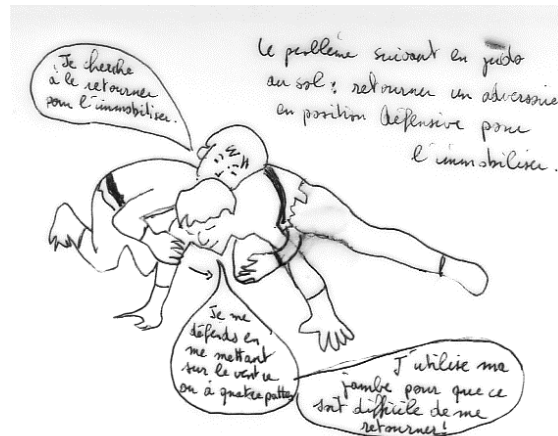 Je cherche
à le retourner
pour l'immobiliser.
Le problème suivant en judo
au sol : retourner un adversaire
en position défensive pour
l'immobiliser.
Je me
défends en
me mettant
sur le ventre
ou à quatre pattes
J'utilise ma
jambe pour que ce
soit difficile de me
retourner !